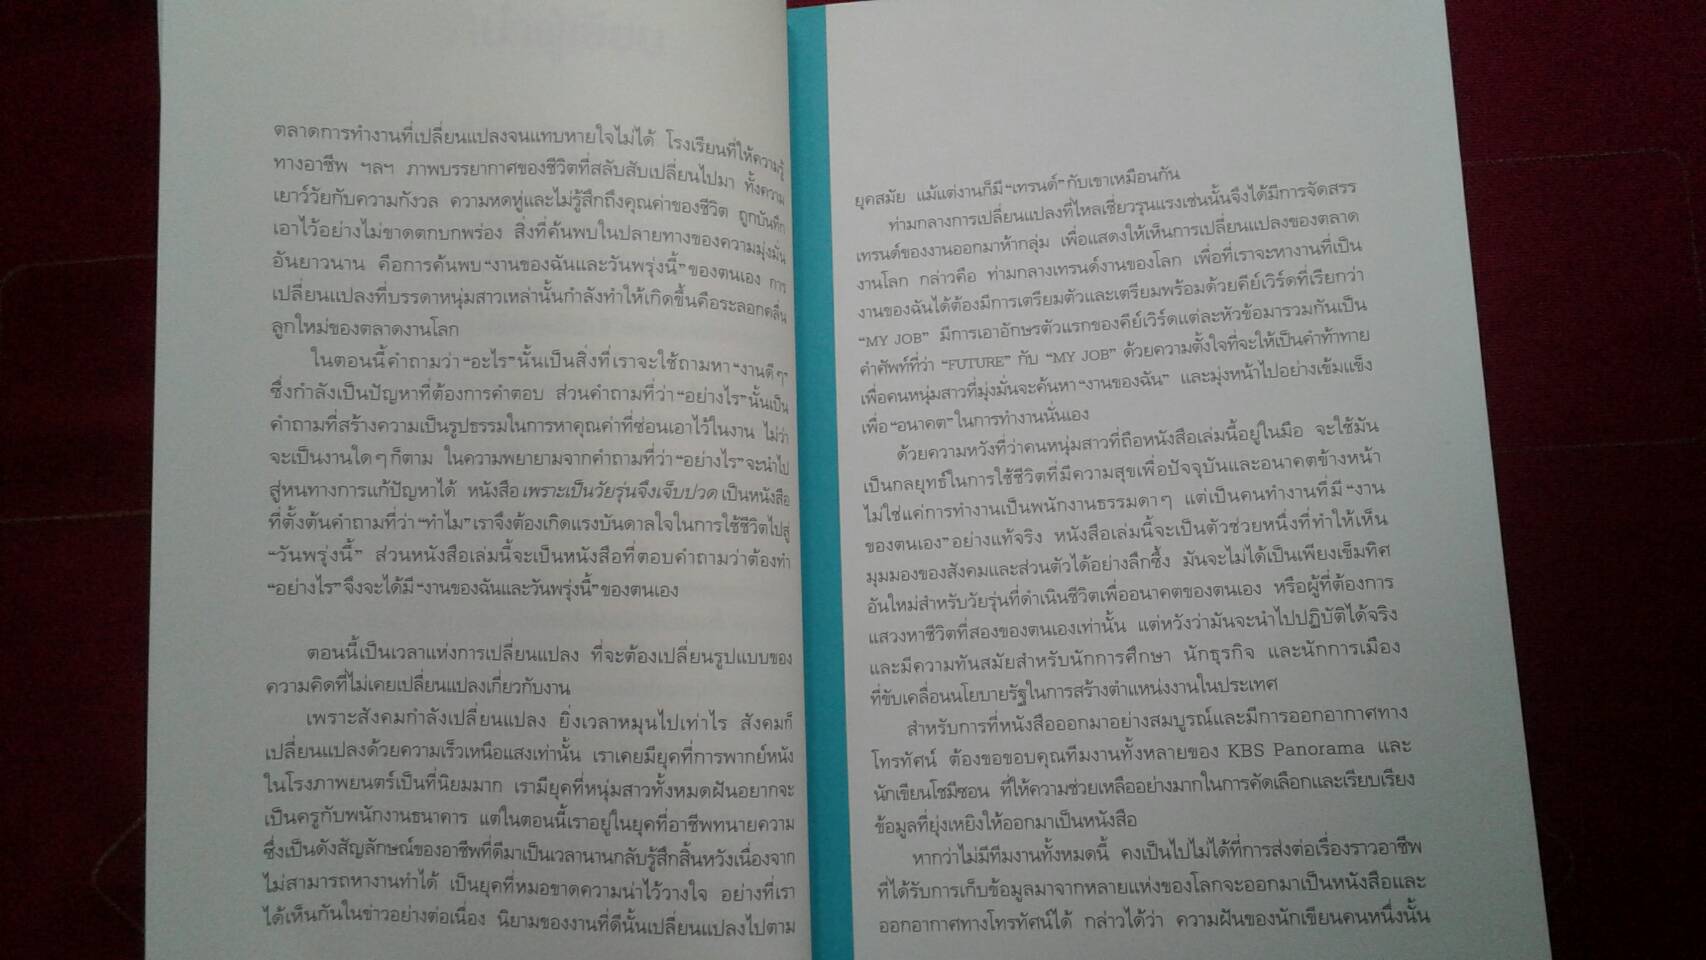 ตลาดการทำงานที่เปลี่ยนแปลงจนแทบหายใจไม่ได้ โรงเรียนที่ให้ความรู้
ทางอาชีพ ฯลฯ ภาพบรรยากาศของชีวิตที่สลับสับเปลี่ยนไปมา ทั้งความ
เยาว์วัยกับความกังวล ความหดหู่และไม่รู้สึกถึงคุณค่าของชีวิต ถูกบันทึก
เอาไว้อย่างไม่ขาดตกบกพร่อง สิ่งที่ค้นพบในปลายทางของความมุ่งมั่น
อันยาวนาน คือการค้นพบ “งานของฉันและวันพรุ่งนี้” ของตนเอง การ
เปลี่ยนแปลงที่บรรดาหนุ่มสาวเหล่านั้นกำลังทำให้เกิดขึ้นคือระลอกคลื่น
ลูกใหม่ของตลาดงานโลก
ในตอนนี้คำถามว่า “อะไร” นั้นเป็นสิ่งที่เราจะใช้ถามหา “งานดีๆ”
ซึ่งกำลังเป็นปัญหาที่ต้องการคำตอบ ส่วนคำถามที่ว่า “อย่างไร” นั้นเป็น
คำถามที่สร้างความเป็นรูปธรรมในการหาคุณค่าที่ซ่อนเอาไว้ในงาน ไม่ว่า
จะเป็นงานใดๆ ก็ตาม ในความพยายามจากคำถามที่ว่า “อย่างไร” จะนำไป
สู่หนทางการแก้ปัญหาได้ หนังสือ เพราะเป็นวัยรุ่นจึงเจ็บปวด เป็นหนังสือ
ที่ตั้งต้นคำถามที่ว่า “ทำไม” เราจึงต้องเกิดแรงบันดาลใจในการใช้ชีวิตไปสู่
“วันพรุ่งนี้” ส่วนหนังสือเล่มนี้จะเป็นหนังสือที่ตอบคำถามว่าต้องทำ
“อย่างไร” จึงจะได้มี “งานของฉันและวันพรุ่งนี้” ของตนเอง
ตอนนี้เป็นเวลาแห่งการเปลี่ยนแปลง ที่จะต้องเปลี่ยนรูปแบบของ
ความคิดที่ไม่เคยเปลี่ยนแปลงเกี่ยวกับงาน
เพราะสังคมกำลังเปลี่ยนแปลง ยิ่งเวลาหมุนไปเท่าไร สังคมก็
เปลี่ยนแปลงด้วยความเร็วเหนือแสงเท่านั้น เราเคยมียุคที่การพากย์หนัง
ในโรงภาพยนตร์เป็นที่นิยมมาก เรามียุคที่หนุ่มสาวทั้งหมดฝันอยากจะ
เป็นครูกับพนักงานธนาคาร แต่ในตอนนี้เราอยู่ในยุคที่อาชีพทนายความ
ซึ่งเป็นดังสัญลักษณ์ของอาชีพที่ดีมาเป็นเวลานานกลับรู้สึกสิ้นหวังเนื่องจาก
ไม่สามารถหางานทำได้ เป็นยุคที่หมอขาดความน่าไว้วางใจ อย่างที่เรา
ได้เห็นกันในข่าวอย่างต่อเนื่อง นิยามของงานที่ดีนั้นเปลี่ยนแปลงไปตาม
ยุคสมัย แม้แต่งานก็มี “เทรนด์” กับเขาเหมือนกัน
ท่ามกลางการเปลี่ยนแปลงที่ไหลเชี่ยวรุนแรงเช่นนั้นจึงได้มีการจัดสรร
เทรนด์ของงานออกมาห้ากลุ่ม เพื่อแสดงให้เห็นการเปลี่ยนแปลงของตลาด
งานโลก กล่าวคือ ท่ามกลางเทรนด์งานของโลก เพื่อที่เราจะหางานที่เป็น
งานของฉันได้ต้องมีการเตรียมตัวและเตรียมพร้อมด้วยคีย์เวิร์ดที่เรียกว่า
“MY JOB” มีการเอาอักษรตัวแรกของคีย์เวิร์ดแต่ละหัวข้อมารวมกันเป็น
คำศัพท์ที่ว่า “FUTURE” กับ “MY JOB” ด้วยความตั้งใจที่จะให้เป็นคำท้าทาย
เพื่อคนหนุ่มสาวที่มุ่งมั่นจะค้นหา “งานของฉัน” และมุ่งหน้าไปอย่างเข้มแข็ง
เพื่อ “อนาคต” ในการทำงานนั่นเอง
ด้วยความหวังที่ว่าคนหนุ่มสาวที่ถือหนังสือเล่มนี้อยู่ในมือ จะใช้มัน
เป็นกลยุทธ์ในการใช้ชีวิตที่มีความสุขเพื่อปัจจุบันและอนาคตข้างหน้า
ไม่ใช่แค่การทำงานเป็นพนักงานธรรมดาๆ แต่เป็นคนทำงานที่มี “งาน
ของตนเอง” อย่างแท้จริง หนังสือเล่มนี้จะเป็นตัวช่วยหนึ่งที่ทำให้เห็น
มุมมองของสังคมและส่วนตัวได้อย่างลึกซึ้ง มันจะไม่ได้เป็นเพียงเข็มทิศ
อันใหม่สำหรับวัยรุ่นที่ดำเนินชีวิตเพื่ออนาคตของตนเอง หรือผู้ที่ต้องการ
แสวงหาชีวิตที่สองของตนเองเท่านั้น แต่หวังว่ามันจะนำไปปฏิบัติได้จริง
และมีความทันสมัยสำหรับนักการศึกษา นักธุรกิจ และนักการเมือง
ที่ขับเคลื่อนนโยบายรัฐในการสร้างตำแหน่งงานในประเทศ
สำหรับการที่หนังสือออกมาอย่างสมบูรณ์และมีการออกอากาศทาง
โทรทัศน์ ต้องขอขอบคุณทีมงานทั้งหลายของ KBS Panorama และ
นักเขียนโชมีซอน ที่ให้ความช่วยเหลืออย่างมากในการคัดเลือกและเรียบเรียง
ข้อมูลที่ยุ่งเหยิงให้ออกมาเป็นหนังสือ
หากว่าไม่มีทีมงานทั้งหมดนี้ คงเป็นไปไม่ได้ที่การส่งต่อเรื่องราวอาชีพ
ที่ได้รับการเก็บข้อมูลมาจากหลายแห่งของโลกจะออกมาเป็นหนังสือและ
ออกอากาศทางโทรทัศน์ได้ กล่าวได้ว่า ความฝันของนักเขียนคนหนึ่งนั้น